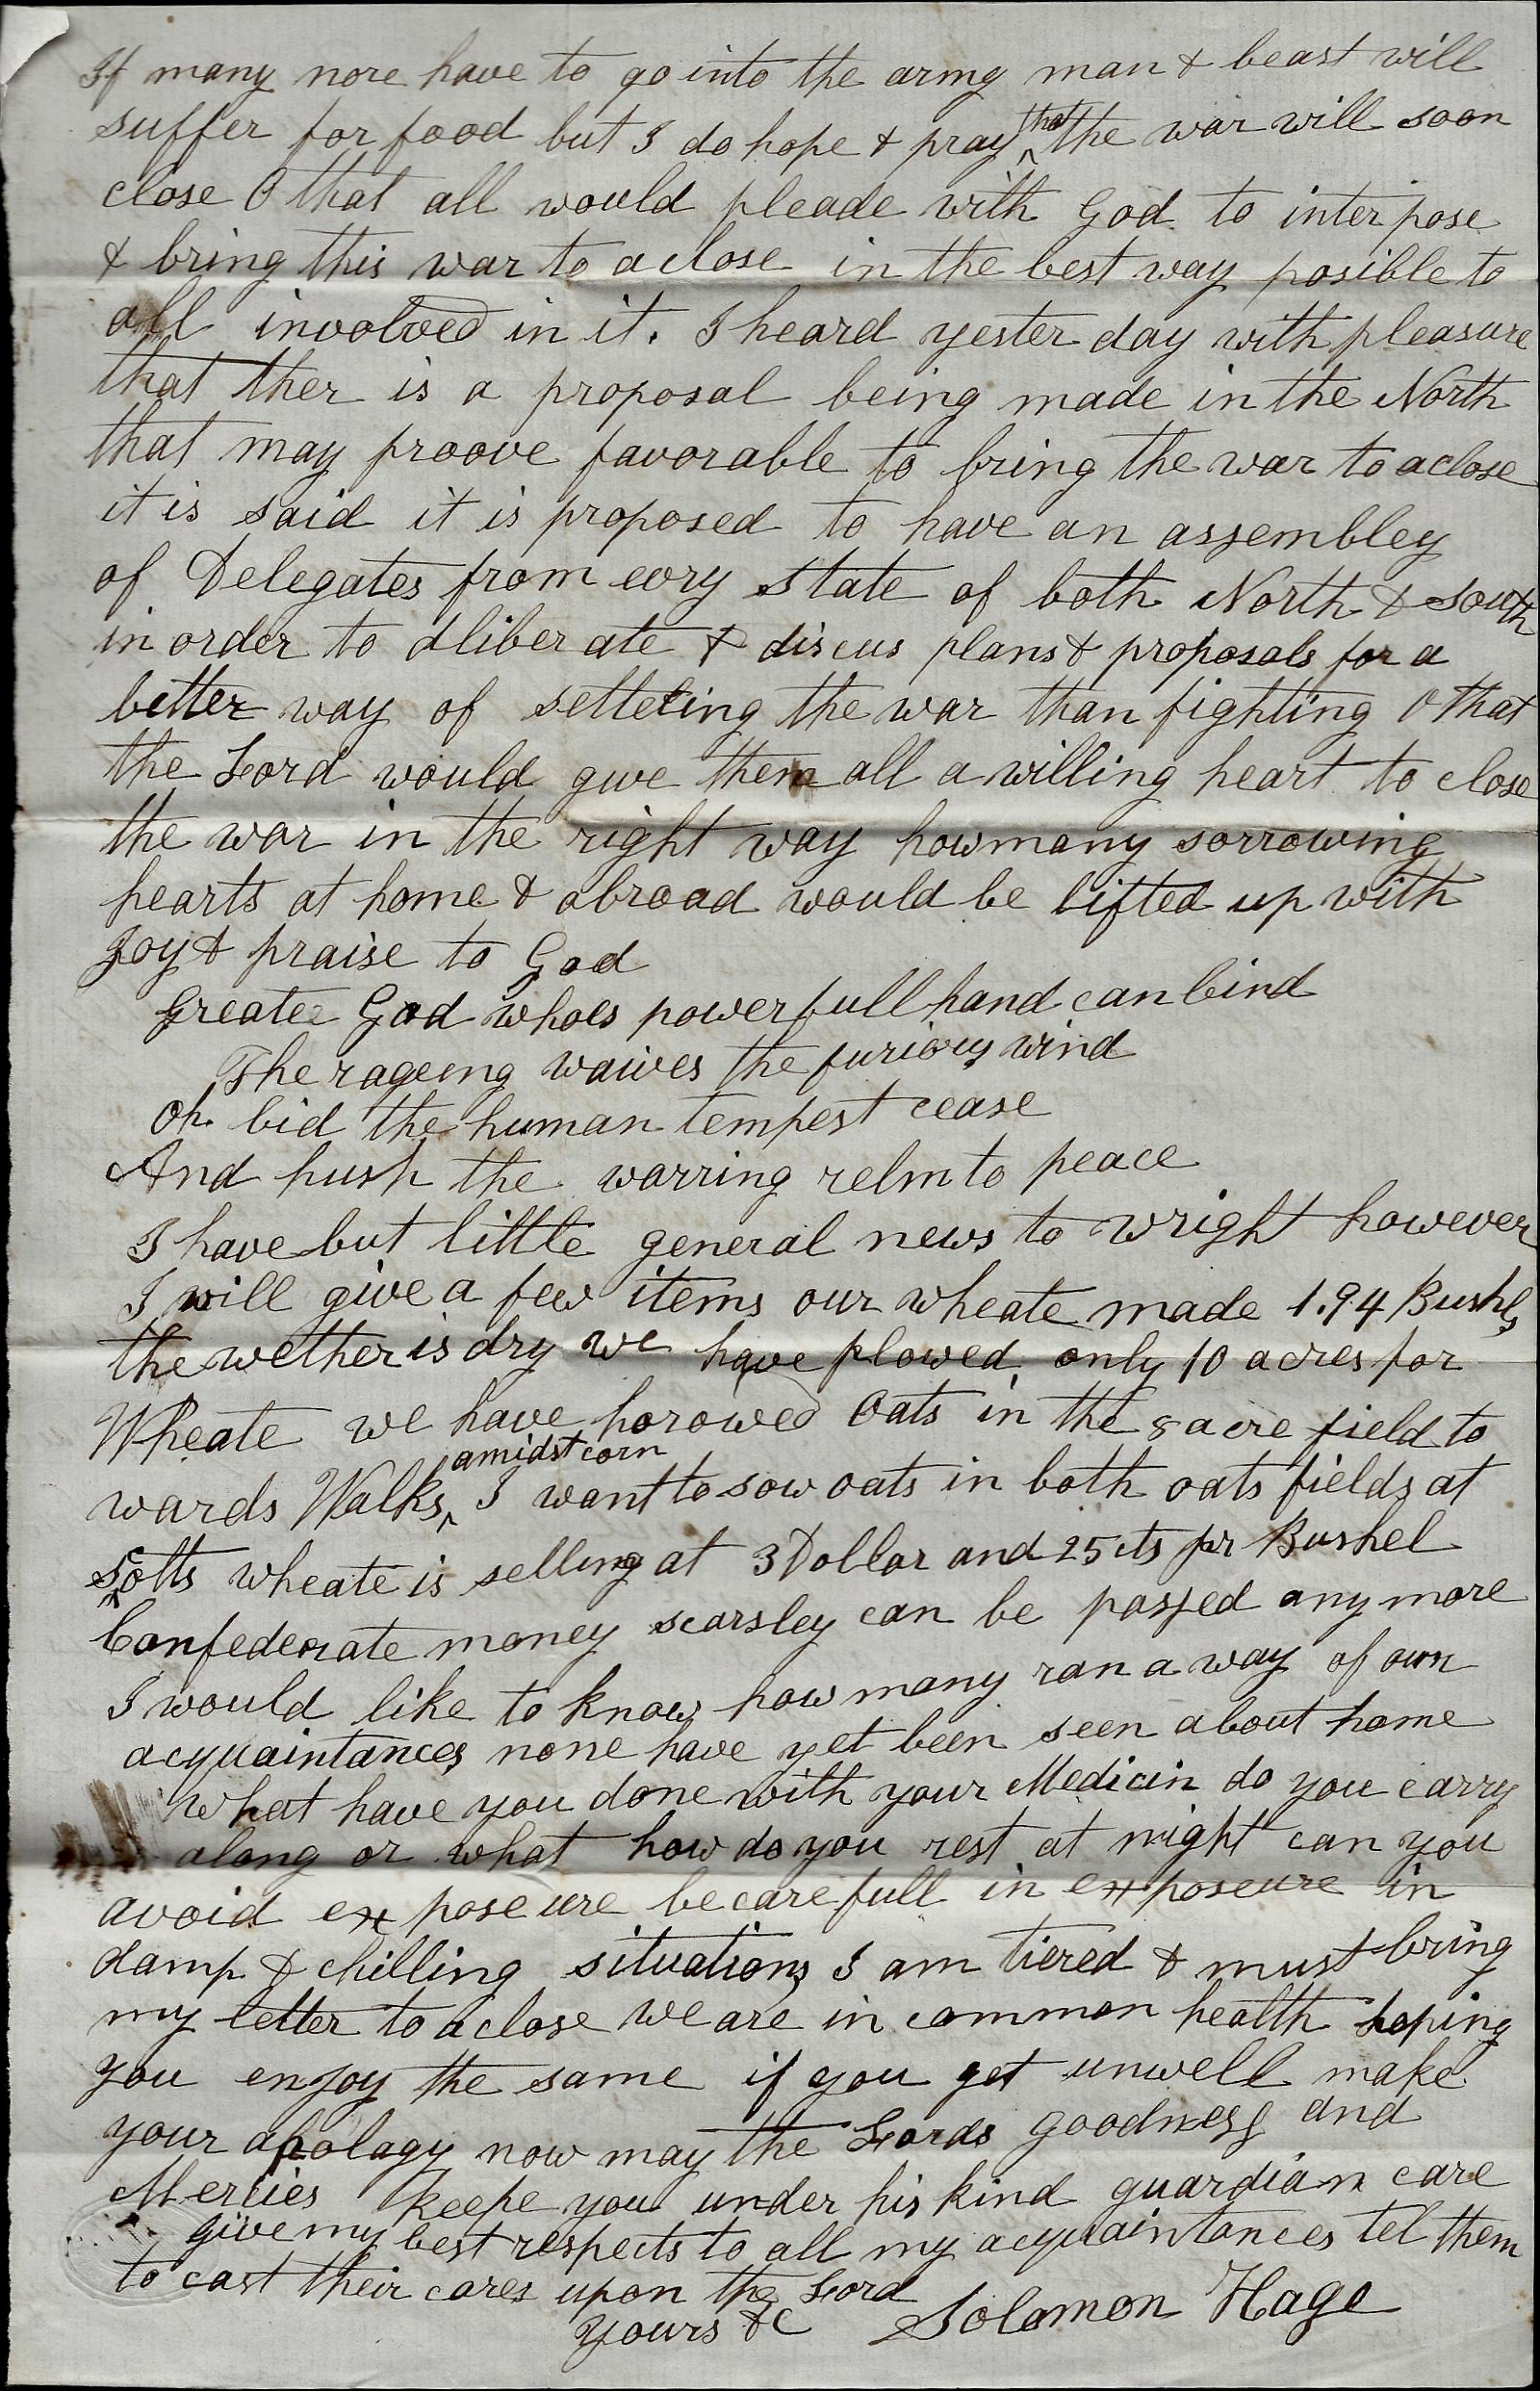 If many nore have to go into the army man & beast will
suffer for food but I do hope & pray that the war will soon
close O that all would pleade with God to inter pose
& bring this war to a close in the best way posible to
all involved in it. I heard yester day with pleasure
that ther is a proposal being made in the North
that may proove favorable to bring the war to a close
it is said it is proposed to have an assembley
of Delegates from evry State of both North & South
in order to dliberate & discus plans & proposals for a
better way of setteling the war than fighting O that
the Lord would give them all a willing heart to close
the war in the right way how many sorrowing
hearts at home & abroad would be lifted up with
Joy & praise to God
Greate God whoes powerfull hand can bind
The rageing waives the furious wind
Oh bid the human tempest cease
And hush the warring relm to peace
I have but little general news to wright however
I will give a few items our wheate made 1.94 Bushls
the wether is dry we have plowed only 10 acres for
Wheate we have horowed Oats in the 8 acre field to
wards Walks amidst corn I want to sow oats in both oats fields at
Sotts wheate is selling at 3 Dollar and 25 cts pr Bushel
Confederate money scarsley can be passed any more
I would like to know how many ran a way of own
acquaintances none have yet been seen about home
What have you done with your Medicin do you carry
along or what how do you rest at night can you
avoid ex pose ure be carefull in exposeure in
damp & chilling situations I am tiered & must bring
my letter to a close we are in common health hoping
you enjoy the same if you get unwell make
your apology now may the Lords goodness and
Mercies keepe you under his kind guardian care
give my best respects to all my acquaintances tel them
to cast their cares upon the Lord
yours &c Solomon Hage